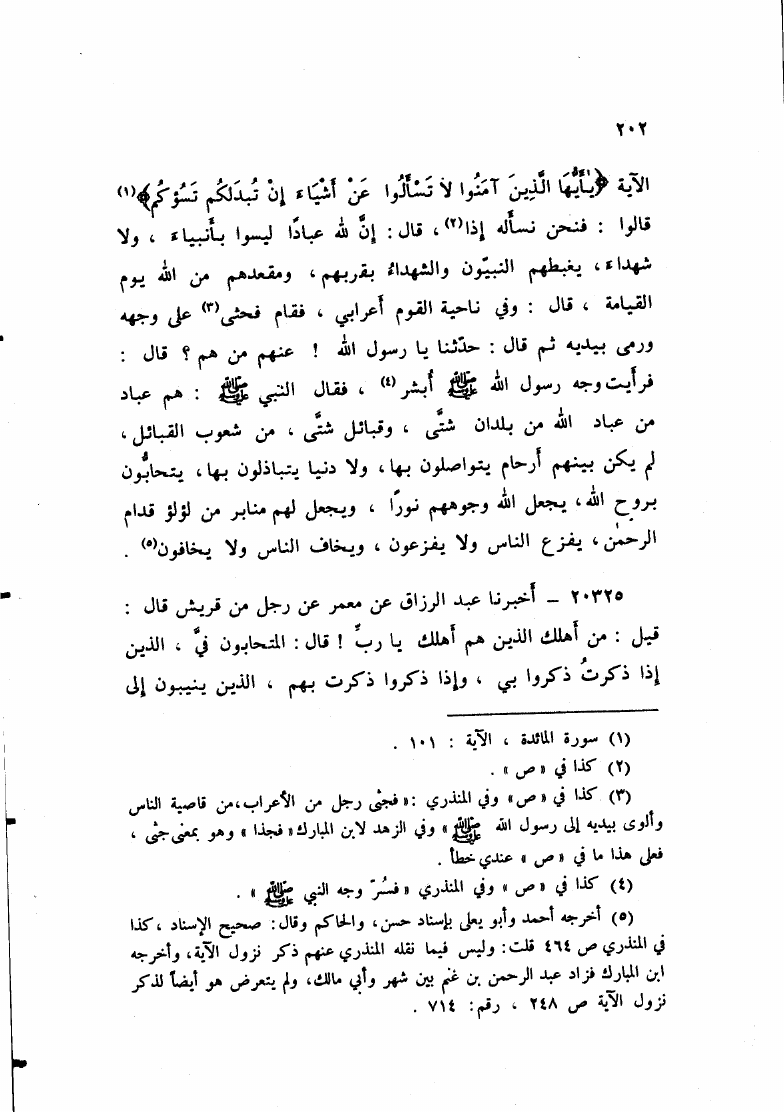 ٢٠٢
الآية ﴿يٰأَيُّهَا الَّذِينَ آمَنُوا لاَ تَسْأَلُوا عَنْ أَشْيَاءَ إِنْ تُبدَلَكُم تَسُؤكُم﴾(١)
قالوا : فنحن نسأله إذا(٢)، قال: إنَّ لله عبادًا ليسوا بأنبياء ، ولا
شهداء، يغبطهم النبيّون والشهداءُ بقربهم، ومقعدهم من الله يوم
القيامة ، قال : وفي ناحية القوم أعرابي ، فقام فحثى(٣) على وجهه
ورمى بيديه ثم قال : حدّثنا يا رسول الله ! عنهم من هم ؟ قال :
فرأيت وجه رسول الله ﷺ أبشر(٤) ، فقال النبي ﷺ : هم عباد
من عباد الله من بلدان شتَّى ، وقبائل شتَّى ، من شعوب القبائل،
لم يكن بينهم أرحام يتواصلون بها، ولا دنيا يتباذلون بها، يتحابُّون
بروح الله، يجعل الله وجوههم نورًا ، ويجعل لهم منابر من لؤلؤ قدام
الرحمٰن، يفزع الناس ولا يفزعون، ويخاف الناس ولا يخافون(٥) .
٢٠٣٢٥ – أخبرنا عبد الرزاق عن معمر عن رجل من قريش قال :
قيل : من أهلك الذين هم أهلك يا ربِّ ! قال: المتحابون فيَّ ، الذين
إذا ذكرتُ ذكروا بي ، وإذا ذكروا ذكرت بهم ، الذين ينيبون إلى
(١) سورة المائدة ، الآية : ١٠١ .
(٢) كذا في «ص» .
(٣) كذا في «ص» وفي المنذري :«فجثى رجل من الأعراب،من قاصية الناس
وألوى بيديه إلى رسول الله ﷺ» وفي الزهد لابن المبارك«فجذا» وهو بمعنى جثى ،
فعلى هذا ما في «ص» عندي خطأ .
(٤) كذا في «ص» وفي المنذري «فسُرّ وجه النبي ﷺ» .
(٥) أخرجه أحمد وأبو يعلى بإسناد حسن، والحاكم وقال: صحيح الإسناد ،كذا
في المنذري ص ٤٦٤ قلت: وليس فيما نقله المنذري عنهم ذكر نزول الآية، وأخرجه
ابن المبارك فزاد عبد الرحمن بن غنم بين شهر وأبي مالك، ولم يتعرض هو أيضاً لذكر
نزول الآية ص ٢٤٨ ، رقم: ٧١٤ .